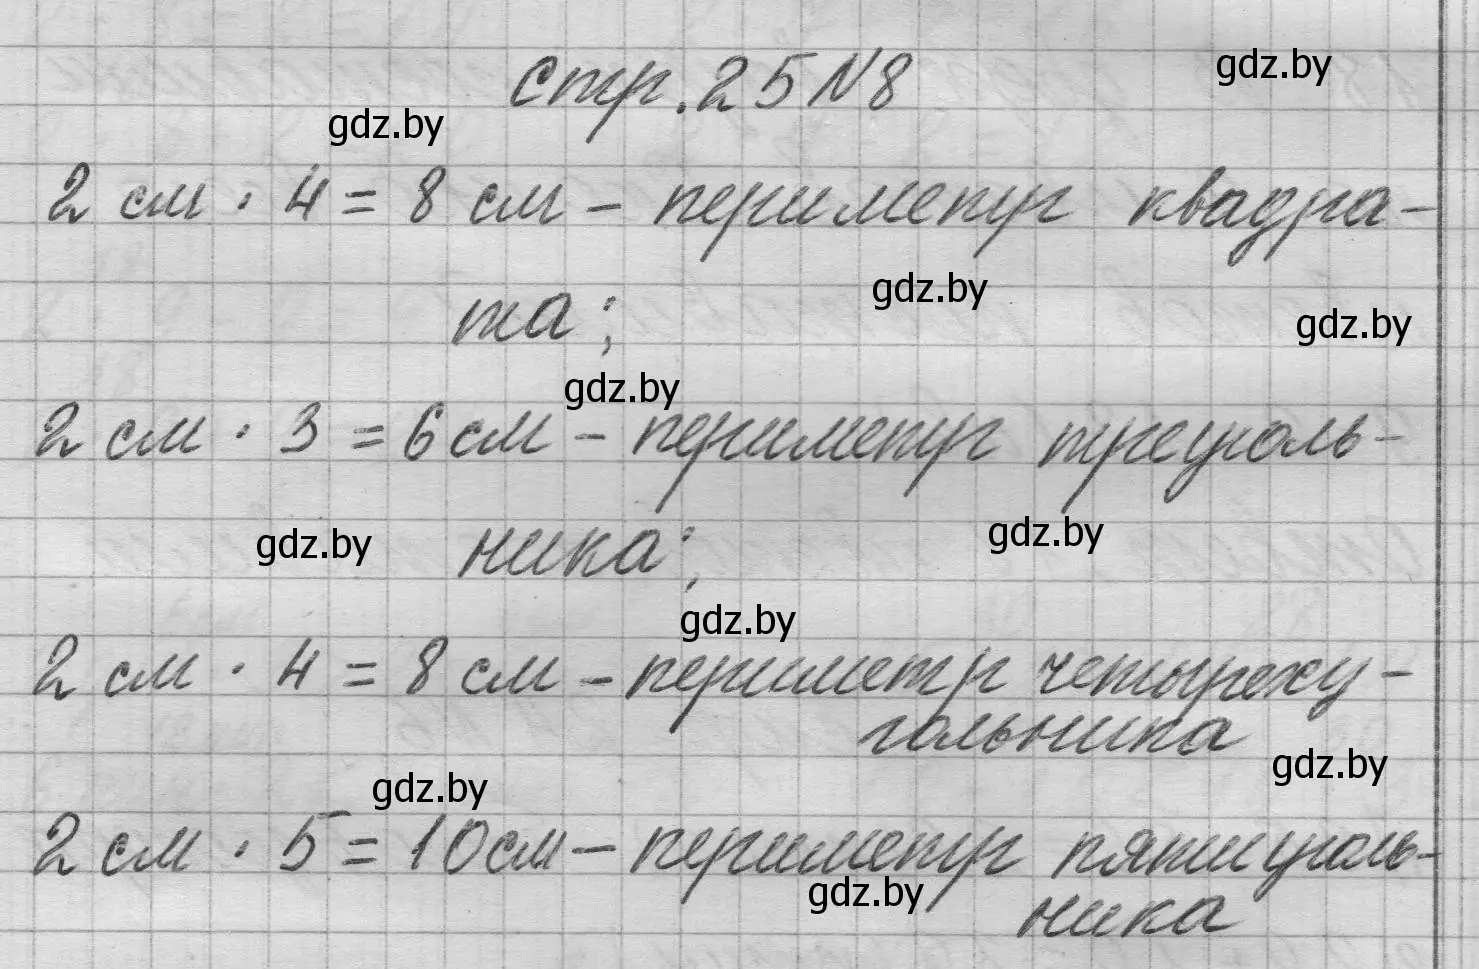 стр. 25 N8
gdz.by
gdz.by
2 см · 4 = 8 см - периметр квадра-
gdz.by
та;
gdz.by
gdz.by
2 см · 3 = 6 см - периметр треуголь-
gdz.by
ника;
gdz.by
gdz.by
2 см · 4 = 8 см - периметр четыреху-
гольника
gdz.by
gdz.by
2 см · 5 = 10 см - периметр пятиуголь-
gdz.by
ника